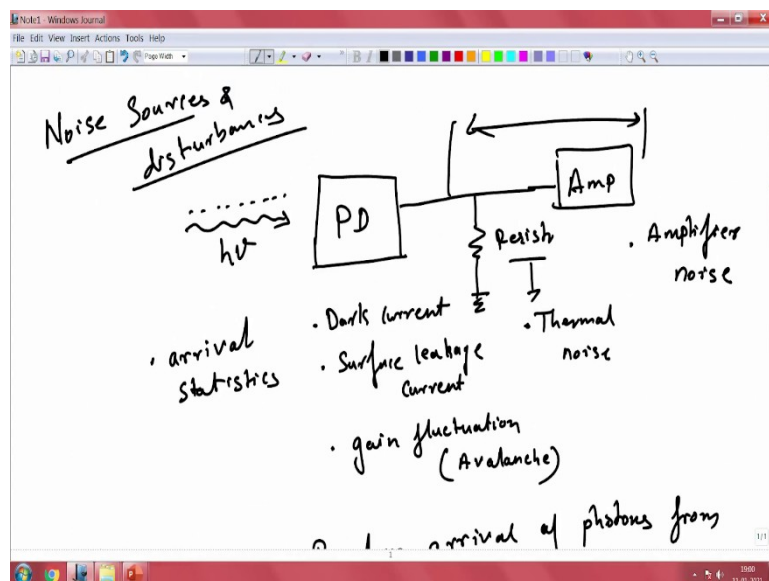 Note1 - Windows Journal
File Edit View Insert Actions Tools Help
Page Width
B I
Noise Sources &
disturbances
hν
PD
Amp
Resistr
• Amplifier
noise
• arrival
statistics
• Dark current
• Surface leakage
current
• gain fluctuation
(Avalanche)
• Thermal
noise
arrival of photons from
1
1/1
19:00
11-01-2021